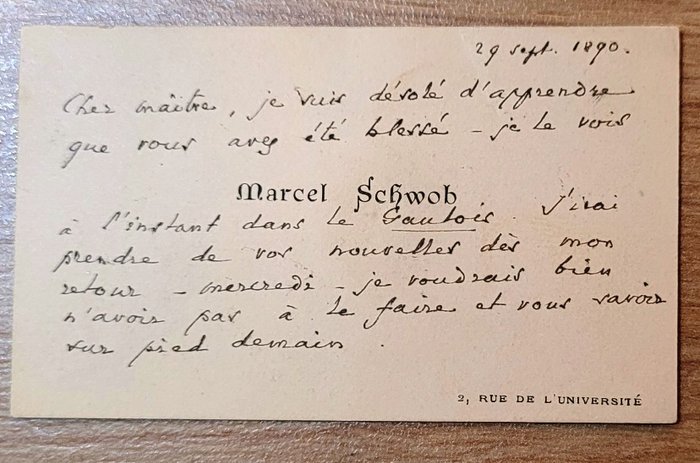 29 sept. 1890.
Cher maître, je suis désolé d'apprendre
que vous avez été blessé – je le vois
Marcel Schwob
à l'instant dans le Gaulois. J'irai
prendre de vos nouvelles dès mon
retour – mercredi – je voudrais bien
n'avoir pas à le faire et vous savoir
sur pied demain.
2, RUE DE L'UNIVERSITÉ